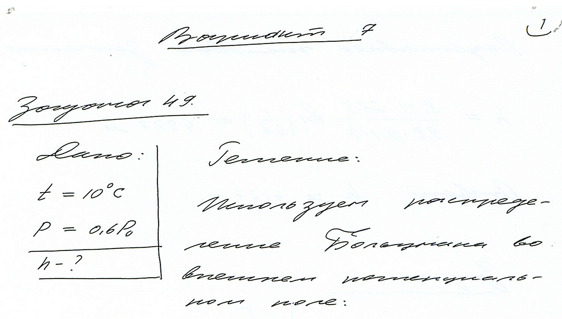 1
Вариант 7
Задача 49.
Дано:
t = 10°C
P = 0,6P₀
h - ?
Решение:
Используем распреде-
ление Больцмана во
внешнем потенциаль-
ном поле: